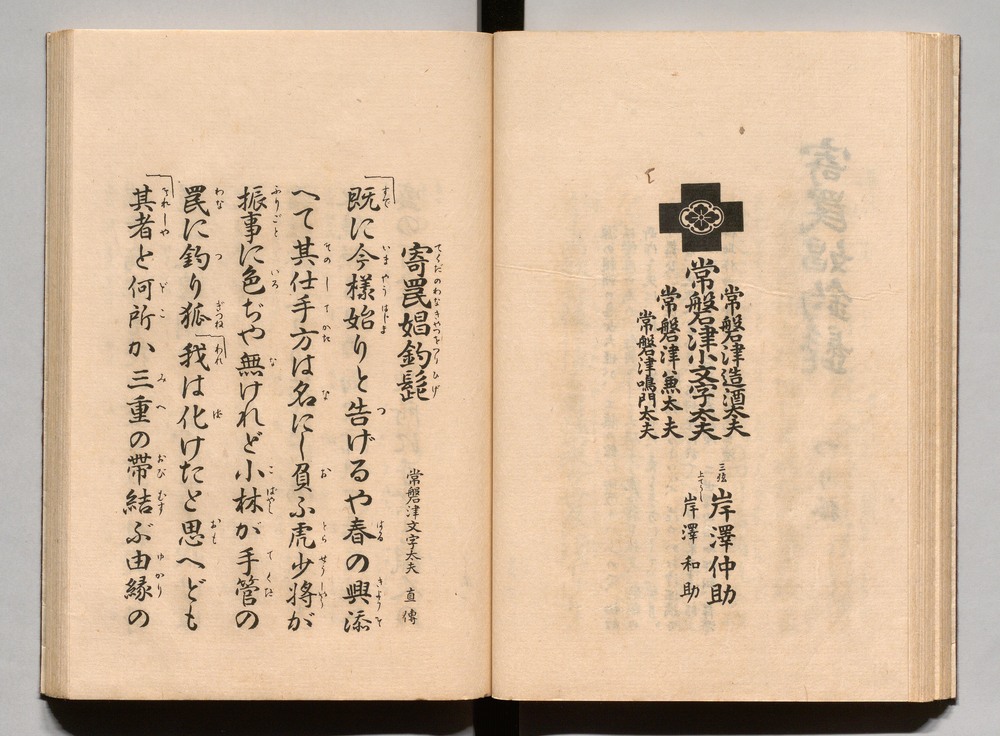 常磐津造酒太夫
常磐津小文字太夫
常磐津兼太夫
常磐津鳴門太夫
三弦 岸澤仲助
上てうし 岸澤和助
寄罠娼釣髭
常磐津文字太夫 直傳
既に今様始りと告げるや春の興添
へて其仕手方は名にし負ふ虎少将が
振事に色ぢや無けれど小林が手管の
罠に釣り狐我は化けたと思へども
其者と何所か三重の帯結ぶ由縁の